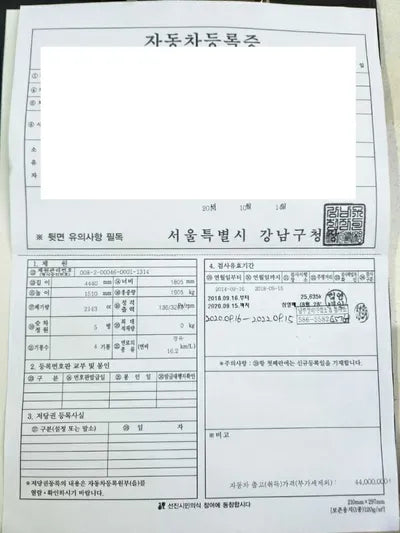 자동차등록증
일
소
유
자
20 년 10월 1일
※ 뒷면 유의사항 필독
서울특별시 강남구청
1. 제 원
제원관리번호 008-2-00046-0001-1314
길이 4440 mm 너비 1805 mm
높이 1510 mm 총중량 1905 kg
배기량 2143 cc 정격출력
승차정원 5 명 최대적재량 0 kg
기통수 4 기통 연료의종류 경유 (연비 16.2 km/L)
2. 등록번호판 교부 및 봉인
구 분 번호판발급일 봉인일 발급대행자확인
3. 저당권 등록사실
구분(설정 또는 말소) 일자
※저당권등록의 내용은 자동차등록원부(을)를
열람·확인하시기 바랍니다.
4. 검사유효기간
연월일부터 연월일까지 주행거리
2014-09-16 2018-09-15
2018.09.16 부터 25,635㎞
2020.09.15 까지
2020.09.16 - 2022.09.15
※주의사항: 항 첫째란에는 신규등록일을 기재합니다.
※비고
자동차 출고(취득)가격(부가세제외): 44,000,000
선진시민의식 참여에 동참합시다
210mm×297mm
[보존용지(1종)120g/㎡]